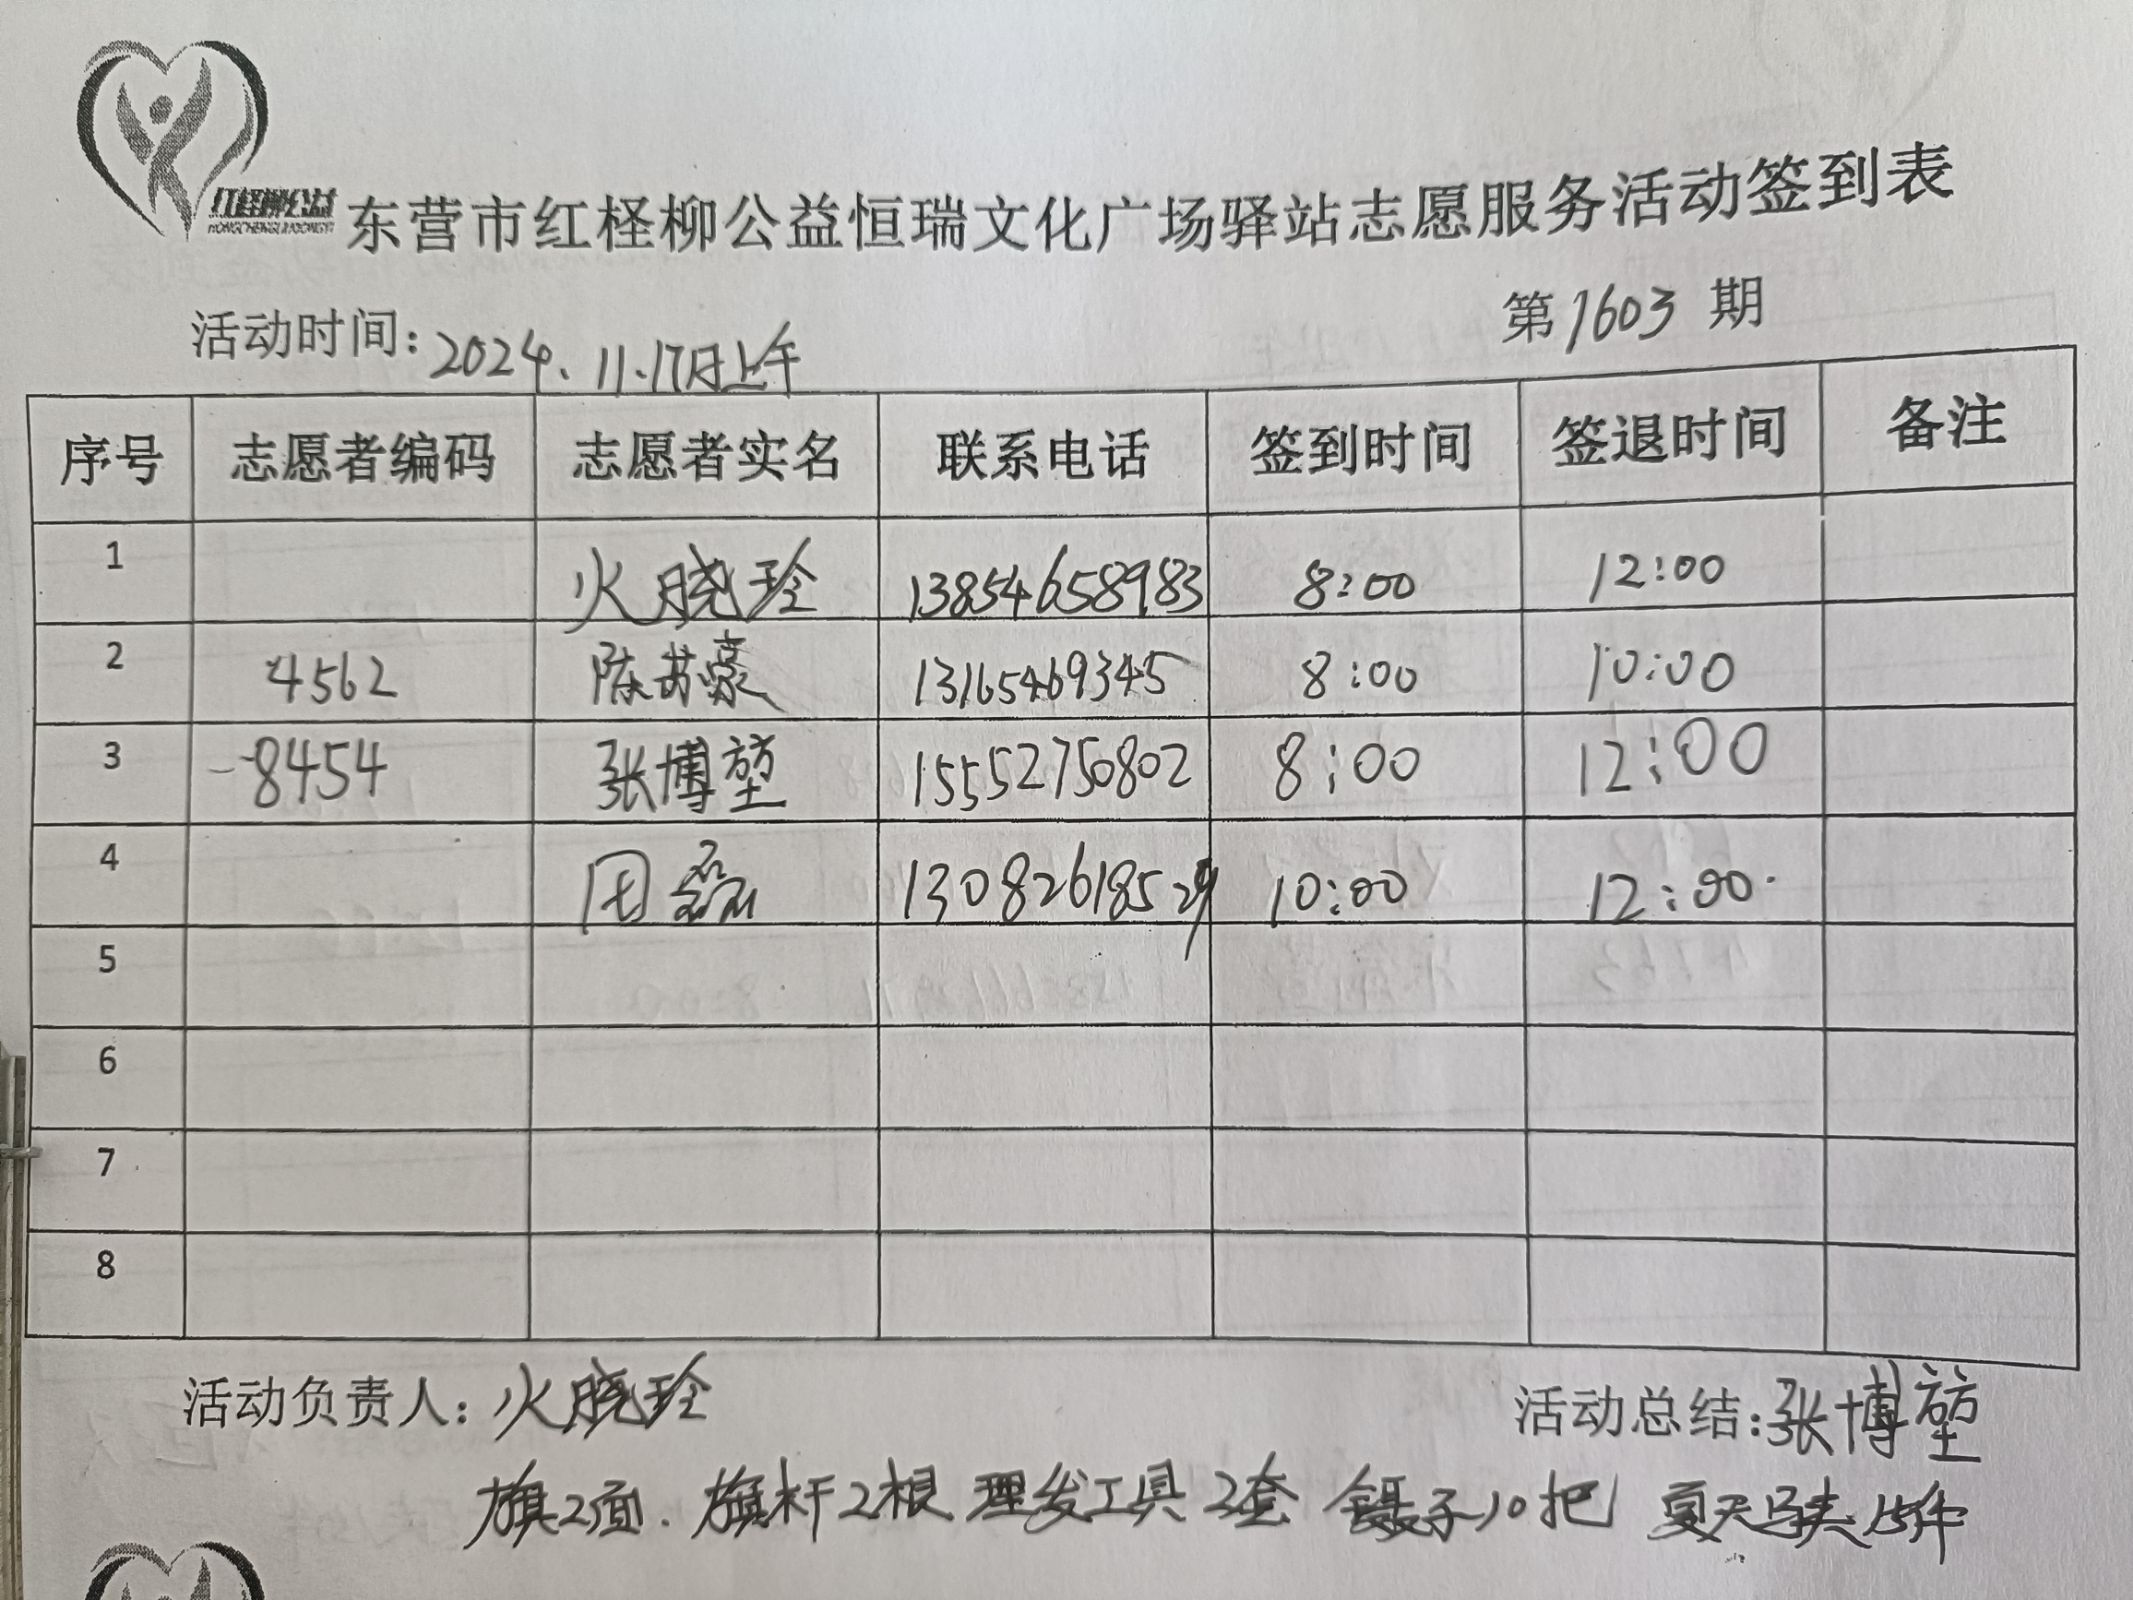 红柽柳公益
HONGCHENGLIUGONGYI
东营市红柽柳公益恒瑞文化广场驿站志愿服务活动签到表
第1603期
活动时间：2024、11.17日上午
序号 志愿者编码 志愿者实名 联系电话 签到时间 签退时间 备注
1 火晓玲 13854658983 8:00 12:00
2 4562 陈苏豪 13165469345 8:00 10:00
3 8454 张博堃 15552750802 8:00 12:00
4 田磊 13082618529 10:00 12:00
5
6
7
8
活动负责人：火晓玲 活动总结：张博堃
旗2面. 旗杆2根 理发工具2套 镊子10把 夏天马夹15件